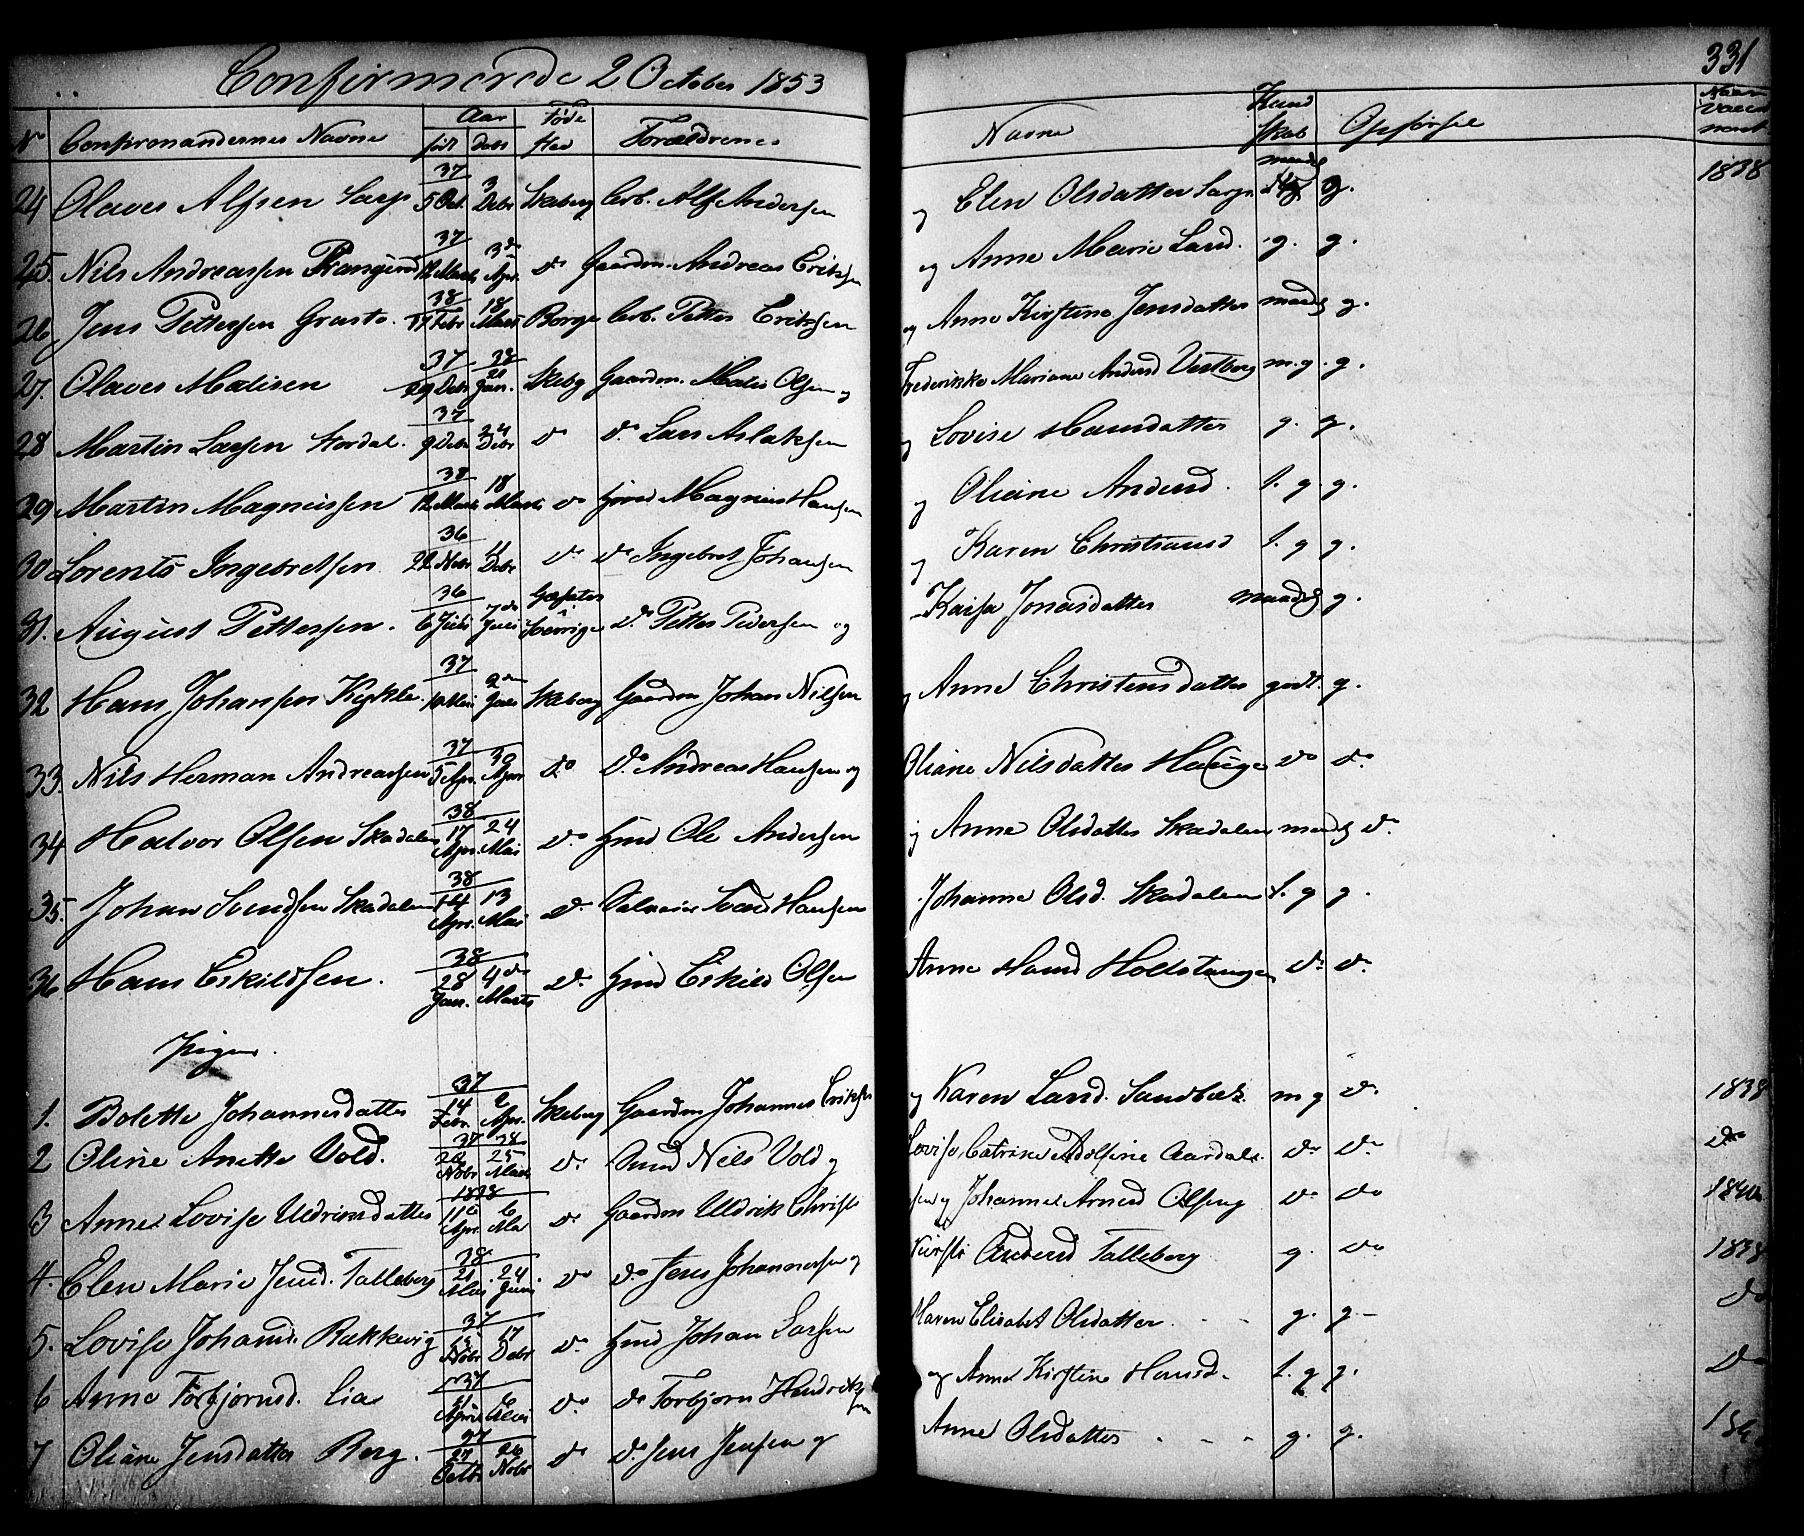 Confirmerede 2 October 1853
331
No Confirmandernes Navne
Aar
født
døbt
Føde
Sted
Forældrenes
Navne
Kund
skab
Opførsel
Vaccinert
24 Olaves Alfsen Sarp 37 5 Oct. 3 Debr Skeberg Arb. Alf Andersen og Elen Olsdatter Sarp. g. 1838
25. Nils Andreassen 37 12 Marts 3de Apr. do Gaardm. Andreas Eriksen og Anne Marie Larsd. g. g.
26 Jens Pettersen 38 Febr 18 Marts Borge Arb. Petter Eriksen og Anne Kirstine Jensdatter maadl g.
27. Olaves Matisen 37 29 Debr 38 21 Jan. Skebg Gaardm. Matis Olsen og Frederikke Mariane Andersd Vestberg m.g. g.
28 Martin Larsen Stordal. 37 9 Debr 24 Debr do do Lars Aslaksen og Lovise Hansdatter g. g.
29 Martin Magnussen 38 12 Marts 18 Marts do Hmd Magnus Hansen og Oliane Andersd. t. g. g.
30 Lorents Ingebretsen 36 22 Nobr 11 Debr do do Ingebret Johansen og Karen Christiansd t. g g.
31. August Pettersen. 36 6 Juli 7de Juli i Sverrige do Petter Pedersen og Kaisa Jonasdatter maadl g.
32 Hans Johansen Kjykle. 37 Mai 2den Juli Skeberg Gaardm Johan Nilsen og Anne Christensdatter godt. g.
33. Nils Herman Andreassen 37 5 Apr. 30 Apr do do Andreas Hansen og Oliane Nilsdatter Hauge do do
34 Halvor Olsen Skadalen 38 17 Apr. 24 Mai do Hmd Ole Andersen og Anne Olsdatter Skadalen maadl do
35. Johan Svendsen Skadalen 38 14 Apr. 13 Mai do Svend Hansen Johanne Olsd. Skadalen t. g g.
36 Hans Eskildsen. 38 28 Jan. 4de Marts do Hmd Eskild Olsen Anne Hansd Holstangen do do
Piger.
1. Bolette Johannesdatter 37 14 Febr. 2 Apr. Skeberg Gaardm Johannes Eriksen og Karen Larsd. Sandbæk m g do 1838
2 Oline Anette Vold. 37 26 Nobr 38 25 Marts do Nils Vold og Lovise Catrine Adolfine Aardal. do do do
3 Anne Lovise Uldriksdatter 1838 11te Apr. 6 Mai do Gaardm Uldrik Christensen og Johanne Arnesd Olseng do do
4. Elen Marie Jensd. Talleberg 38 21 Mai 24 Juni do do Jens Johannessen og Kirsti Andersd Talleberg g. do 1838
5. Lovise Johansd. Rækkevig 37 15 Nobr 17 Debr do Hmd Johan Larsen Maren Elisabet Olsdatter g. g. do
6 Anne Torbjørnsd. Lia 37 21 April Mai do do Torbjørn Hendriksen og Anne Kirstine Hansd. t. g g. do
7 Oliane Jensdatter Berg. 37 27 Octbr 26 Nobr do do Jens Jensen og Anne Olsdatter g. g.